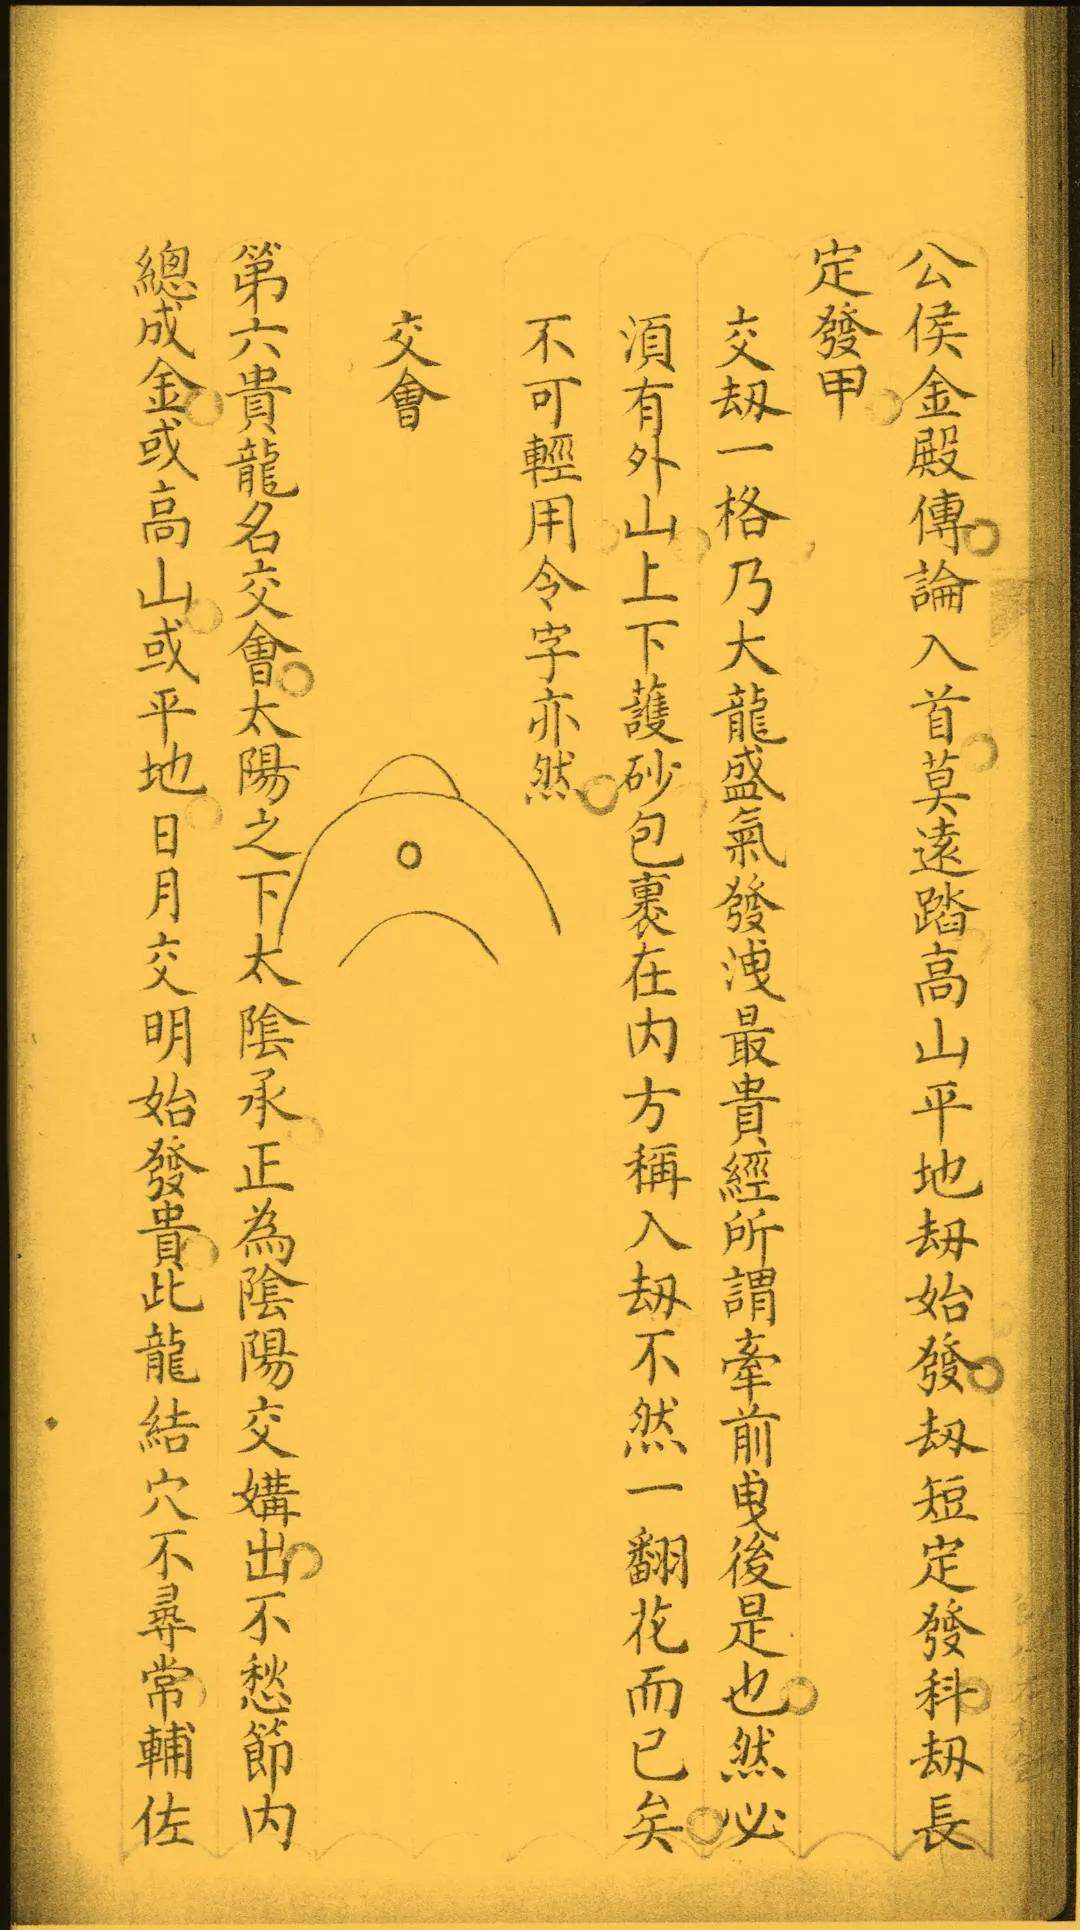 公侯金殿傳論入首莫遠踏高山平地刼始發刼短定發科刼長
定發甲
交刼一格乃大龍盛氣發洩最貴經所謂牽前曳後是也然必
須有外山上下護砂包裹在內方稱入刼不然一翻花而已矣
不可輕用令字亦然
交會
第六貴龍名交會太陽之下太陰承正為陰陽交媾出不愁節內
總成金或高山或平地日月交明始發貴此龍結穴不尋常輔佐